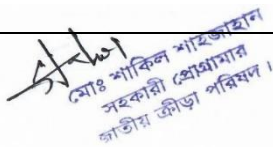 মোঃ শাকিল শাহজাহান
সহকারী প্রোগ্রামার
জাতীয় ক্রীড়া পরিষদ ।